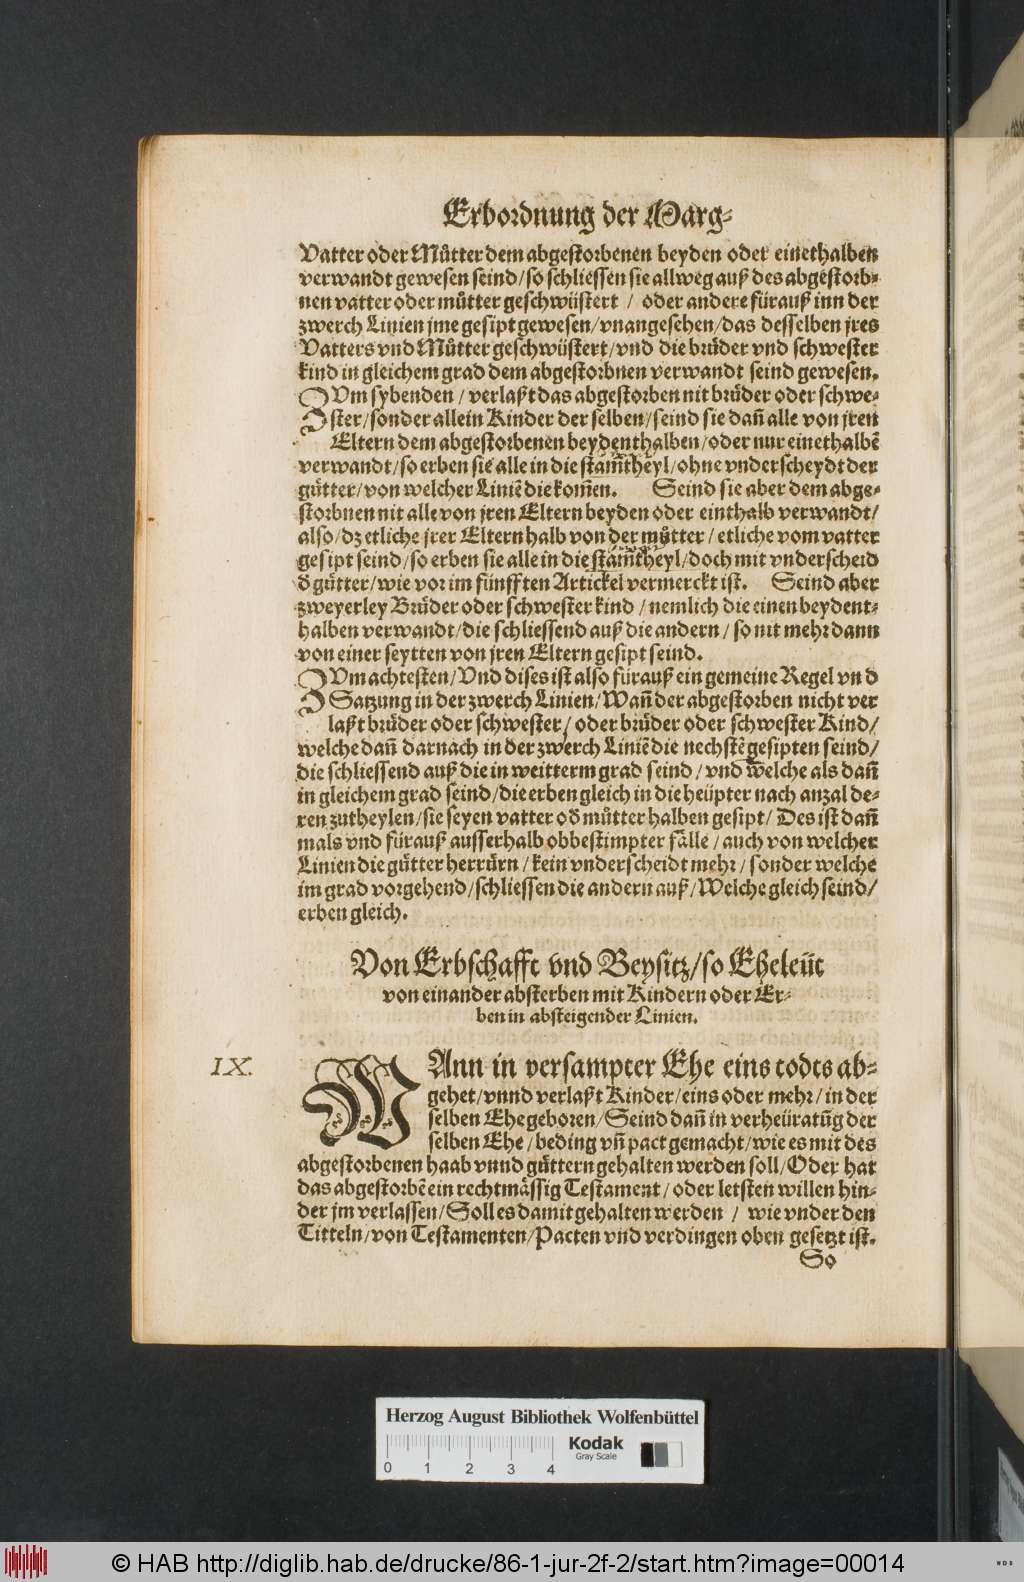 Erbordnung der Marg-
Vatter oder Můtter dem abgestorbenen beyden oder einethalben
verwandt gewesen seind/so schliessen sie allweg auß des abgestorb-
nen vatter oder můtter geschwüstert / oder andere fürauß inn der
zwerch Linien jme gesipt gewesen/vnangesehen/das desselben jres
Vatters vnd Můtter geschwüstert/vnd die brůder vnd schwester
kind in gleichem grad dem abgestorbnen verwandt seind gewesen.
ZVm sybenden / verlaßt das abgestorben nit brůder oder schwe-
ster/sonder allein Kinder der selben/seind sie dañ alle von jren
Eltern dem abgestorbenen beydenthalben/oder nur einethalbẽ
verwandt/so erben sie alle in die stam̃theyl/ohne vnderscheydt der
gůtter/von welcher Liniẽ die kom̃en. Seind sie aber dem abge-
storbnen nit alle von jren Eltern beyden oder einthalb verwandt/
also/dz etliche jrer Eltern halb von der můtter/etliche vom vatter
gesipt seind/so erben sie alle in die stam̃theyl/doch mit vnderscheid
d̃ gůtter/wie vor im fünfften Artickel vermerckt ist. Seind aber
zweyerley Brůder oder schwester kind / nemlich die einen beydent-
halben verwandt/die schliessend auß die andern / so nit mehr dann
von einer seytten von jren Eltern gesipt seind.
ZVm achtesten/Vnd dises ist also fürauß ein gemeine Regel vnd
Satzung in der zwerch Linien/Wañ der abgestorben nicht ver
laßt brůder oder schwester/oder brůder oder schwester Kind/
welche dañ darnach in der zwerch Liniẽ die nechstẽ gesipten seind/
die schliessend auß die in weitterm grad seind / vnd welche als dañ
in gleichem grad seind/die erben gleich in die heüpter nach anzal de-
ren zutheylen/sie seyen vatter od̃ můtter halben gesipt/ Des ist dañ
mals vnd fürauß ausserhalb obbestimpter fälle / auch von welcher
Linien die gůtter herrürn / kein vnderscheidt mehr / sonder welche
im grad vorgehend/schliessen die andern auß/Welche gleich seind/
erben gleich.
Von Erbschafft vnd Beysitz/so Eheleüt
von einander absterben mit Kindern oder Er-
ben in absteigender Linien.
IX.
WAnn in versampter Ehe eins todts ab-
gehet/vnnd verlaßt Kinder/eins oder mehr/in der
selben Ehe geboren/Seind dañ in verheüratũg der
selben Ehe / beding vñ pact gemacht/wie es mit des
abgestorbenen haab vnnd gůttern gehalten werden soll/Oder hat
das abgestorbẽ ein rechtmässig Testament / oder letsten willen hin-
der jm verlassen/Soll es damit gehalten werden / wie vnder den
Titteln/von Testamenten/Pacten vnd verdingen oben gesetzt ist.
So
Herzog August Bibliothek Wolfenbüttel
Kodak
Gray Scale
0 1 2 3 4
© HAB http://diglib.hab.de/drucke/86-1-jur-2f-2/start.htm?image=00014